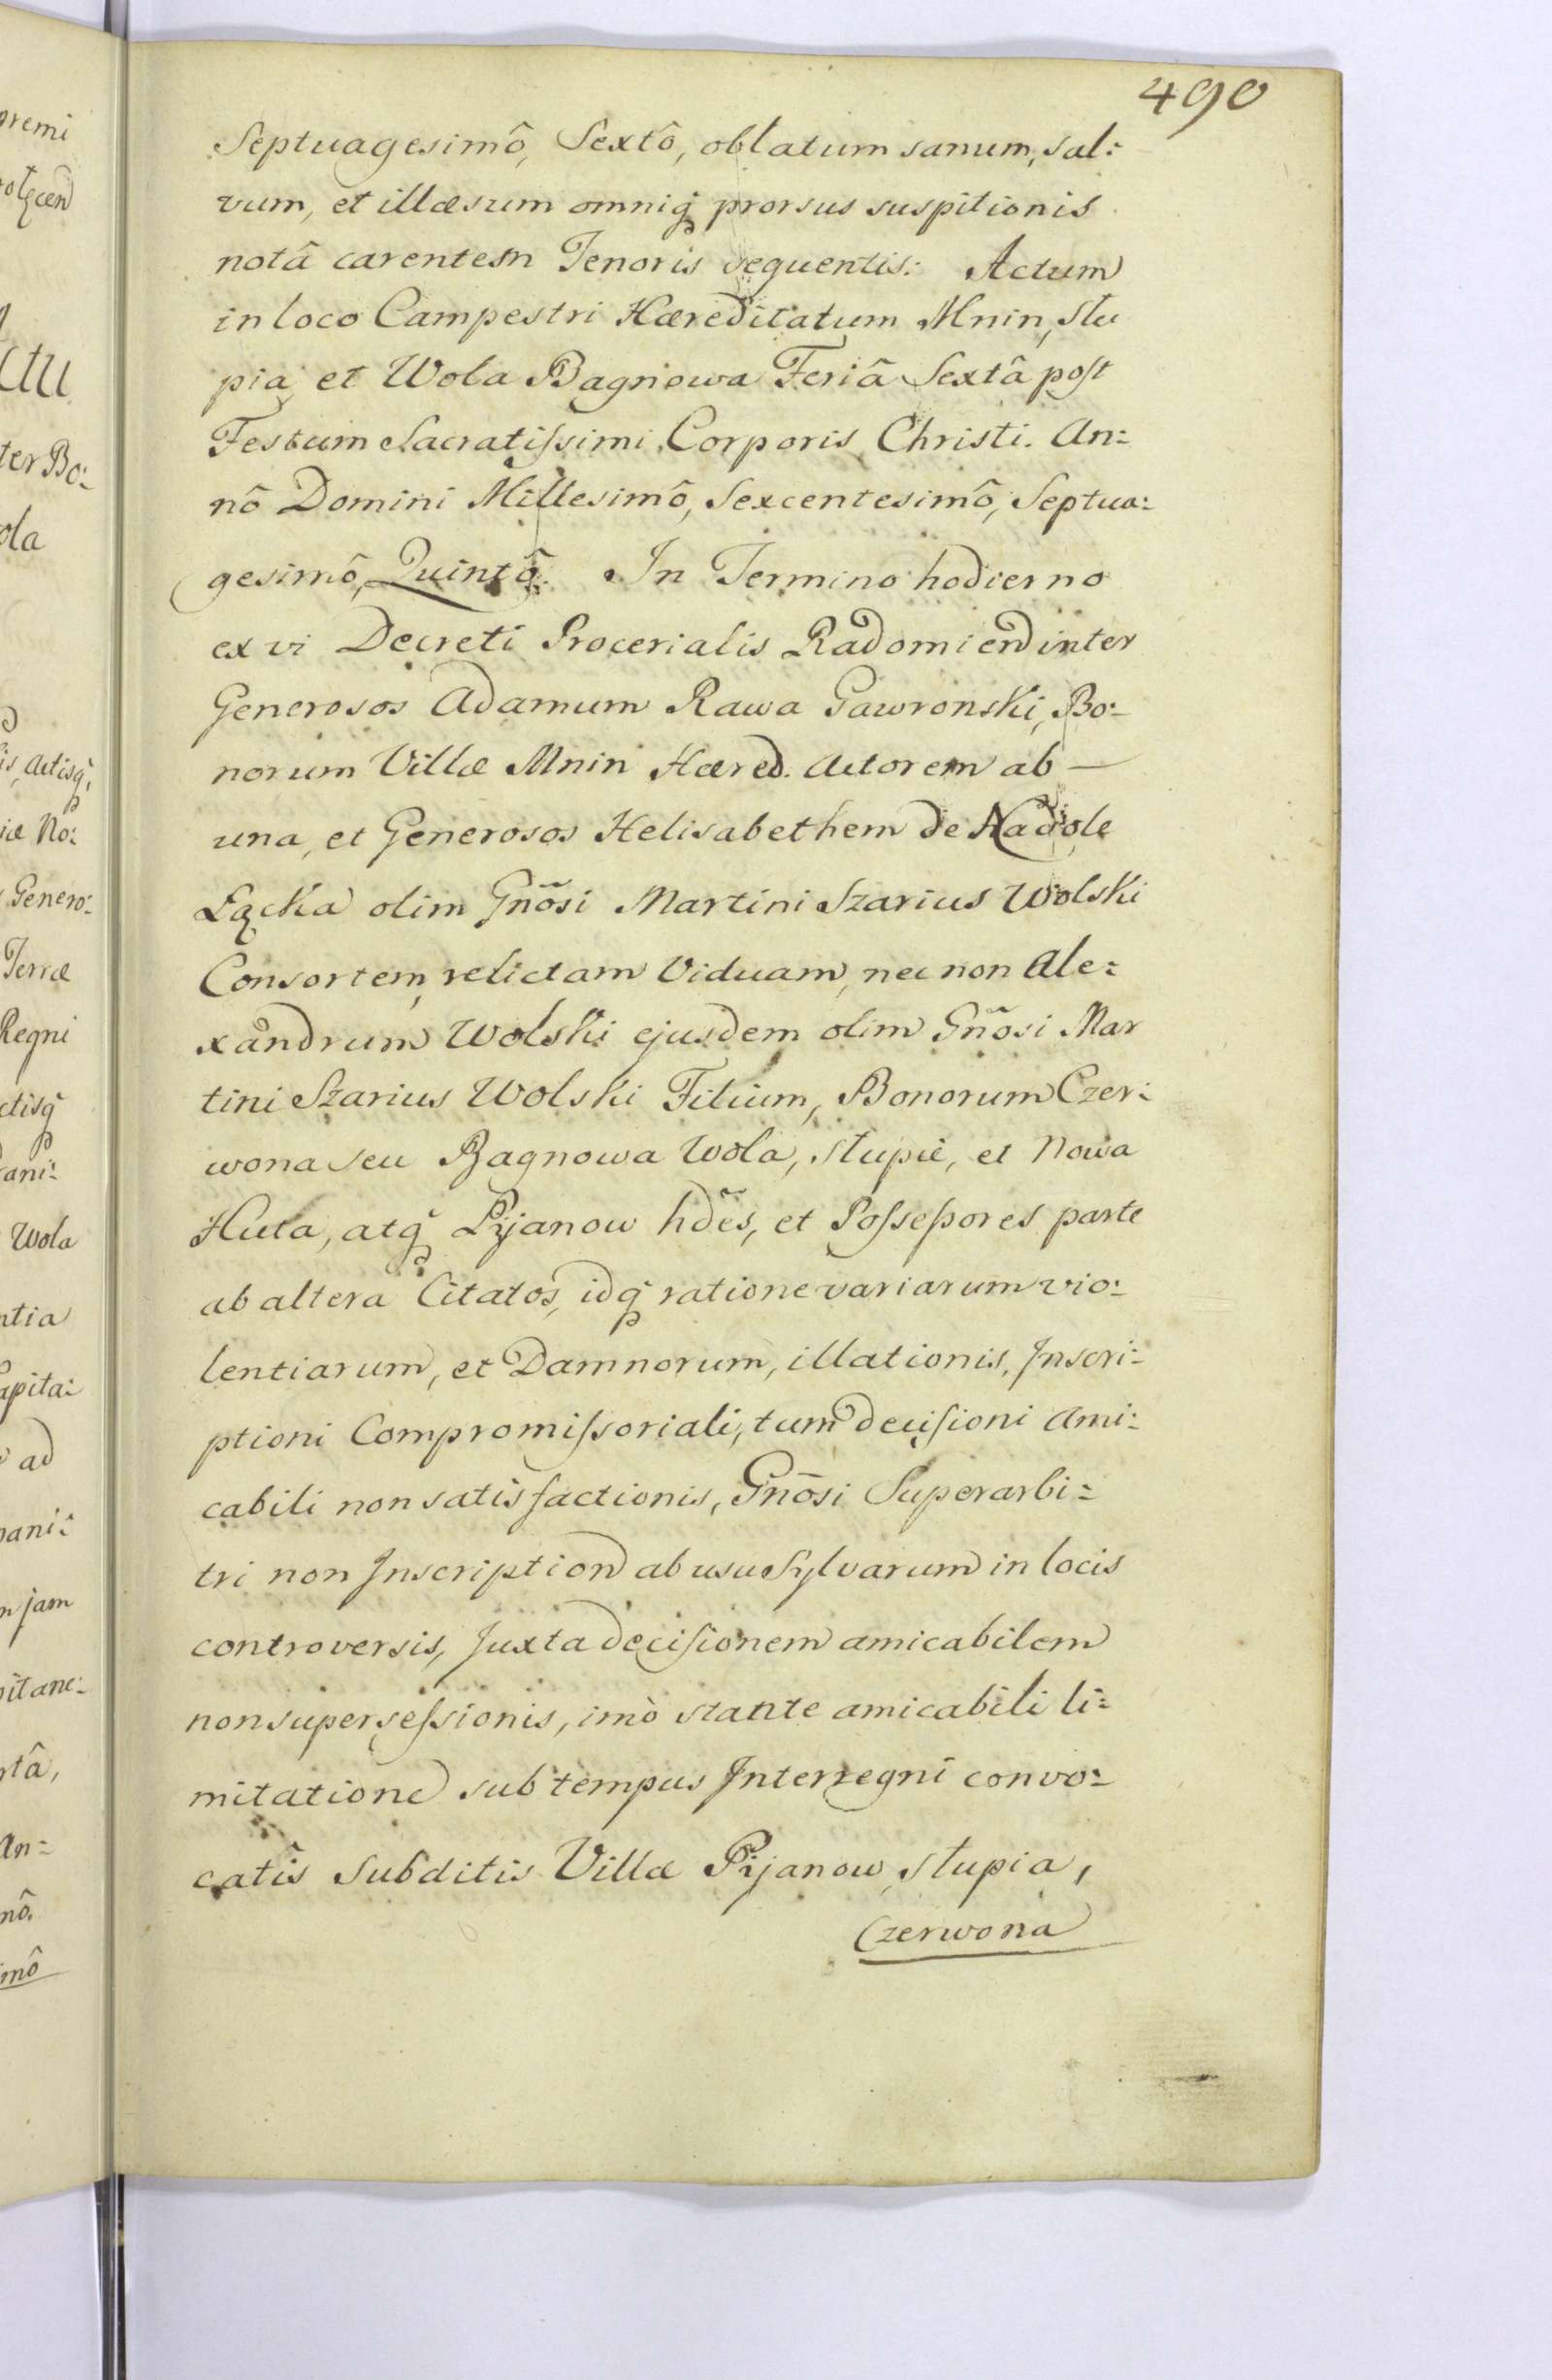 490
Septuagesimô, Sextô, oblatum sanum, sal:
vum, et illæsum omniq́ prorsus suspitionis
notâ carentem Tenoris sequentis: Actum
in loco Campestri Hæreditatum Mnin, Słu
pia, et Wola Bagnowa Feriâ Sextâ post
Festum Sacratissimi Corporis Christi. An:
nô Domini Millesimô, Sexcentesimô, Septua:
gesimô, Quintô. In Termino hodierno
ex vi Decreti Procerialis Radomien inter
Generosos Adamum Rawa Gawronski, Bo:
norum Villæ Mnin Hæred. Actorem ab —
una, et Generosos Helisabethem de Nadole
Łącka olim Gnõsi Martini Szarius Wolski
Consortem, relictam Viduam, nec non Ale:
xandrum Wolski ejusdem olim Gnõsi Mar
tini Szarius Wolski Filium, Bonorum Czer:
wona seu Bagnowa Wola, Słupie, et Nowa
Huta, atq́ Pijanow hdẽs, et Possessores parte
ab altera Citatos, idq́ ratione variarum vio:
lentiarum, et Damnorum, illationis, Inscri:
ptioni Compromissoriali, tum decisioni Ami:
cabili non satisfactionis, Gnõsi Superarbi:
tri non Inscription ab usu Sylvarum in locis
controversis, Juxta decisionem amicabilem
non supersessionis, imò stante amicabili li:
mitatione sub tempus Interregni convo:
catis Subditis Villæ Pijanow, Słupia,
Czerwona